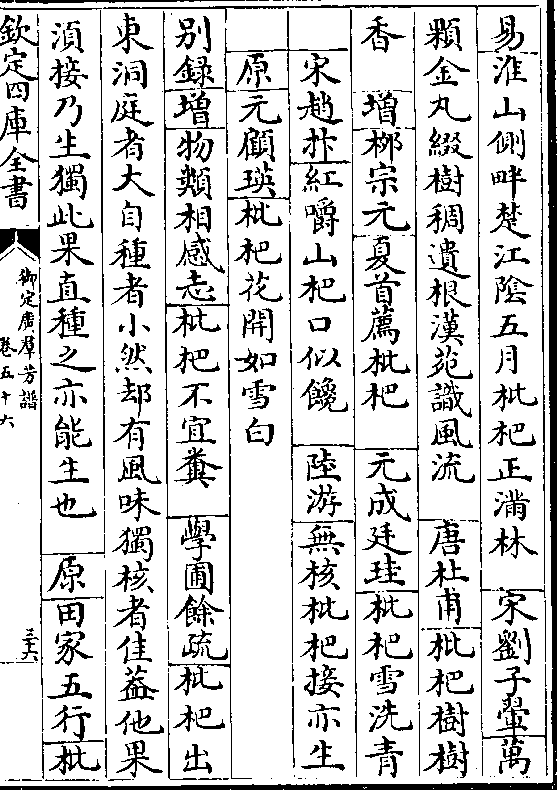 易淮山側畔楚江陰五月枇杷正滿林　宋劉子翬萬
顆金丸綴樹稠遺根漢苑識風流　唐杜甫枇杷樹樹
香　增栁宗元夏首薦枇杷　元成廷珪枇杷雪洗青
宋趙抃紅嚼山杷口似饞　陸游無核枇杷接亦生
原元顧瑛枇杷花開如雪白
别録增物類相感志枇杷不宜糞　學圃餘疏枇杷出
東洞庭者大自種者小然却有風味獨核者佳葢他果
須接乃生獨此果直種之亦能生也　原田家五行枇
欽定四庫全書
御定廣羣芳譜
卷五十六
三六